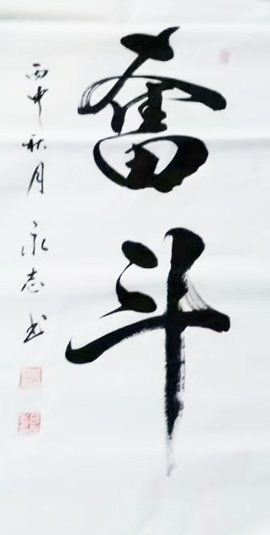 奋斗
丙申秋月
永志书